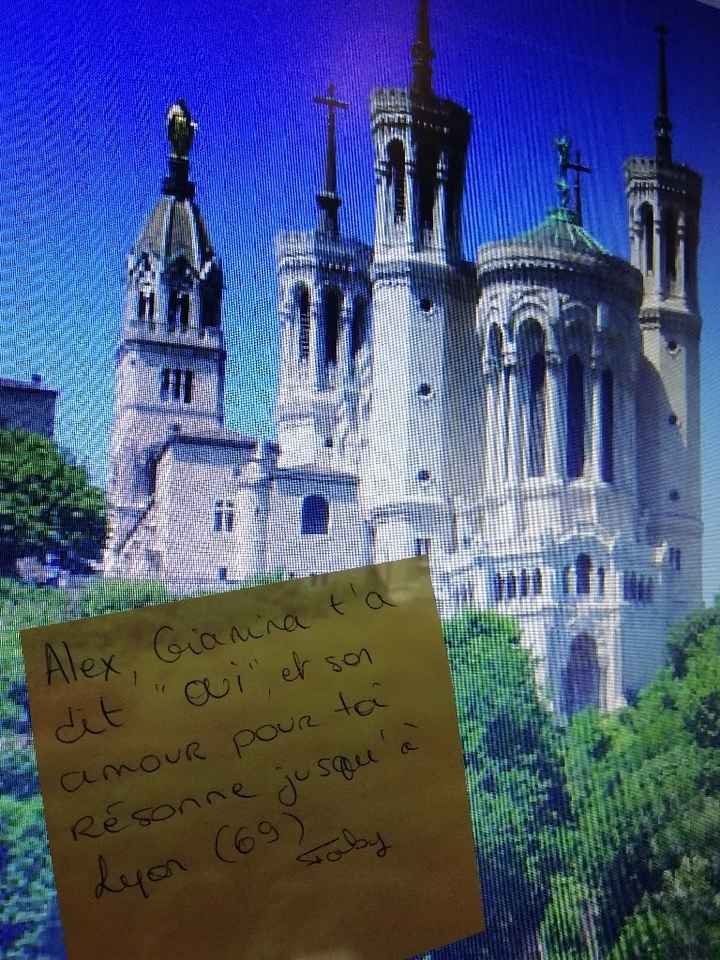 Alex, Gianina t'a
dit "oui", et son
amour pour toi
résonne jusqu'à
Lyon (69)